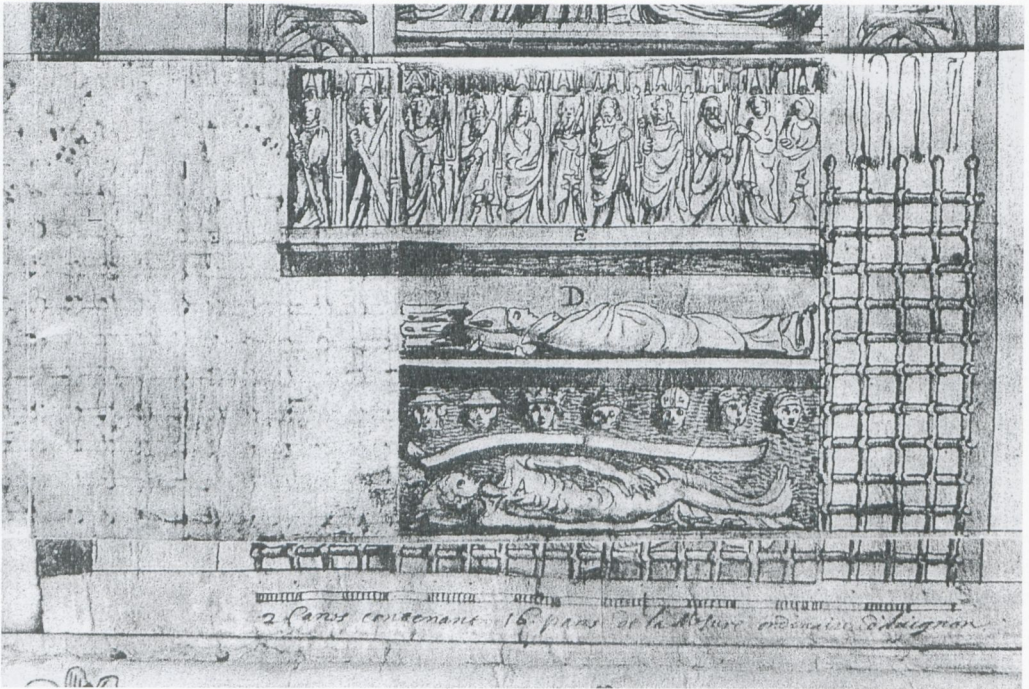 E
D
A
2 Canes contenant 16. pans de la Mesure ordinaire d'Avignon